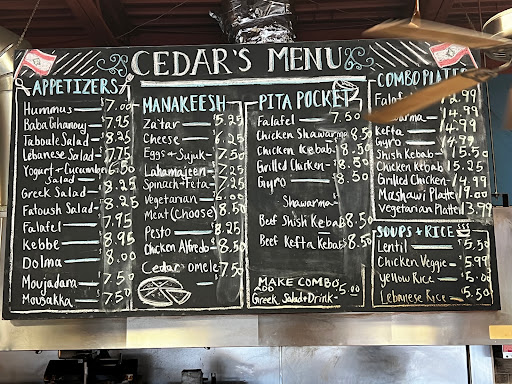 CEDAR'S MENU
APPETIZERS
Hummus 7.00
Baba Ghanouj 7.95
Taboule Salad 8.25
Lebanese Salad 7.75
Yogurt + Cucumber Salad 6.50
Greek Salad 8.25
Fatoush Salad 8.25
Falafel 7.95
Kebbe 8.95
Dolma 8.00
Moujadara 7.50
Mousakka 7.50
MANAKEESH
Za'tar 5.25
Cheese 6.25
Eggs + Sujuk 7.50
Lahamajeen 7.25
Spinach + Feta 7.25
Vegetarian 6.00
Meat (Choose) 8.50
Pesto 8.25
Chicken Alfredo 8.50
Cedar omele 7.50
PITA POCKET
Falafel 7.50
Chicken Shawarma 8.50
Chicken Kebab 8.50
Grilled Chicken 8.50
Gyro 8.50
Shawarma
Beef Shish Kebab 8.50
Beef Kefta Kebab 8.50
MAKE COMBO
ADD
Greek Salad + Drink 5.00
COMBO PLATES
Falaf 12.99
arma 14.99
Kefta 14.99
Gyro 14.99
Shish Kebab 15.25
Chicken Kebab 15.25
Grilled Chicken 14.99
Mashawi Platter 19.00
Vegetarian Platter 13.99
SOUPS + RICE
Lentil 5.50
Chicken Veggie 5.99
Yellow Rice 5.00
Lebanese Rice 5.50